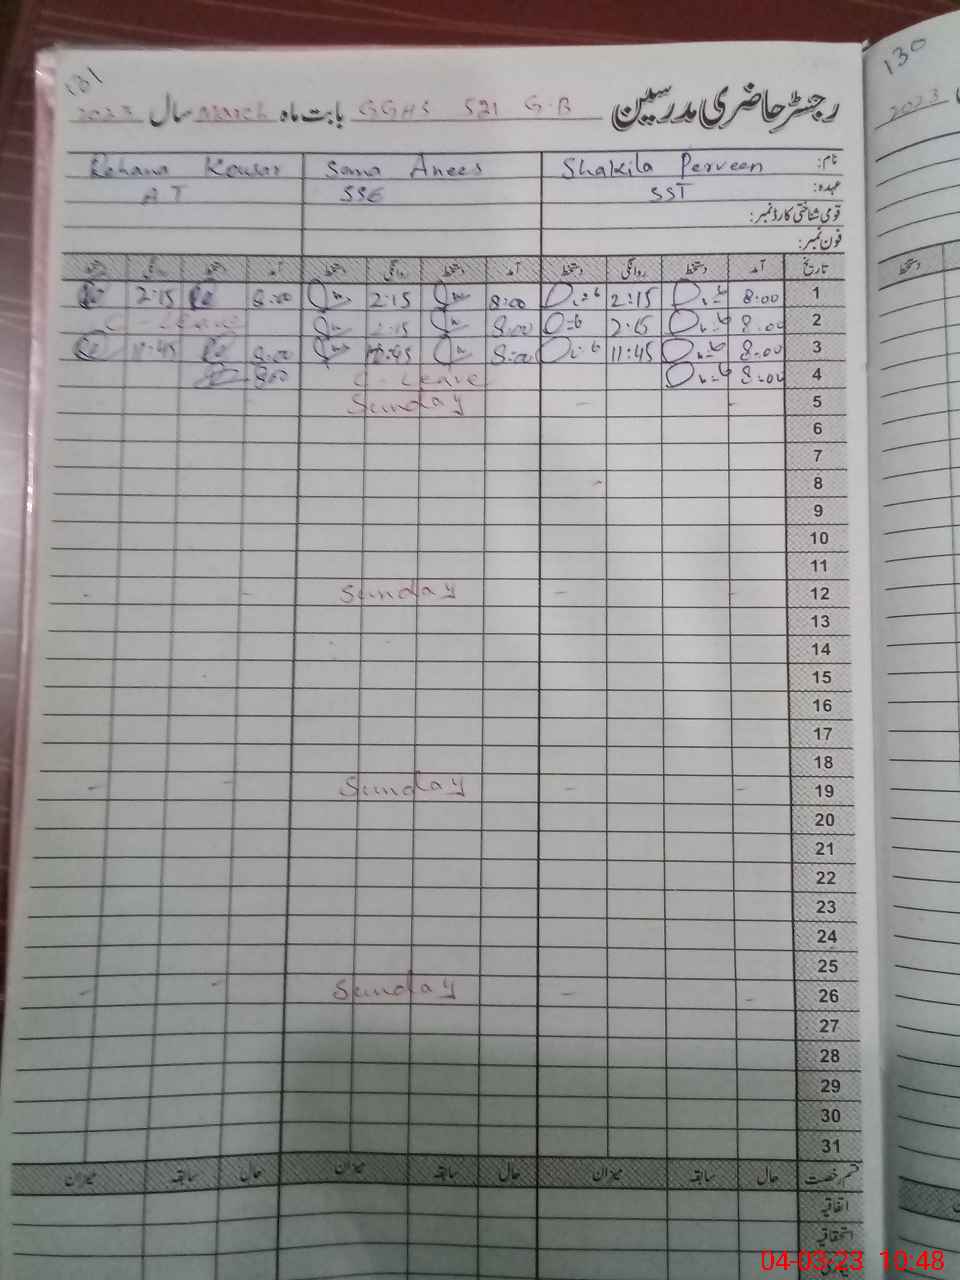 131
130
رجسٹر حاضری مدرسین GGHS 521 G.B بابت ماہ March سال 2023
2023
نام: Shakila Perveen Sana Anees Rehana Kousar
عہدہ: SST SSE AT
قومی شناختی کارڈ نمبر:
فون نمبر:
تاریخ آمد دستخط روانگی دستخط آمد دستخط روانگی دستخط آمد دستخط روانگی دستخط
دستخط
1 8:00 2:15 8:00 2:15 8:00 2:15
2 8:00 2:15 8:00 2:15 C-Leave
3 8:00 11:45 8:00 11:45 8:00 11:45
4 8:00 C-Leave 8:00
5 Sunday
6
7
8
9
10
11
12 Sunday
13
14
15
16
17
18
19 Sunday
20
21
22
23
24
25
26 Sunday
27
28
29
30
31
قسم رخصت حال سابقہ میزان حال سابقہ میزان حال سابقہ میزان
اتفاقیہ
استحقاقیہ
04-03-23 10:48